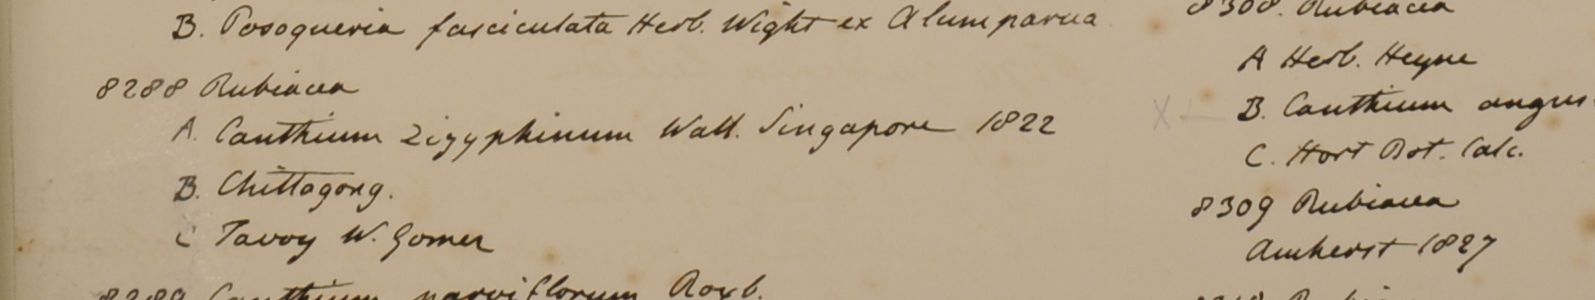 B. Posoqueria fasciculata Herb. Wight ex Alumparva
8288 Rubiacea
A. Canthium Zizyphinum Wall. Singapore 1822
B. Chittagong.
C Tavoy W. Gomez
8289 Canthium parviflorum Roxb.
8308. Rubiacea
A Herb. Heyne
X B. Canthium angus
C. Hort Bot. Calc.
8309 Rubiacea
Amherst 1827